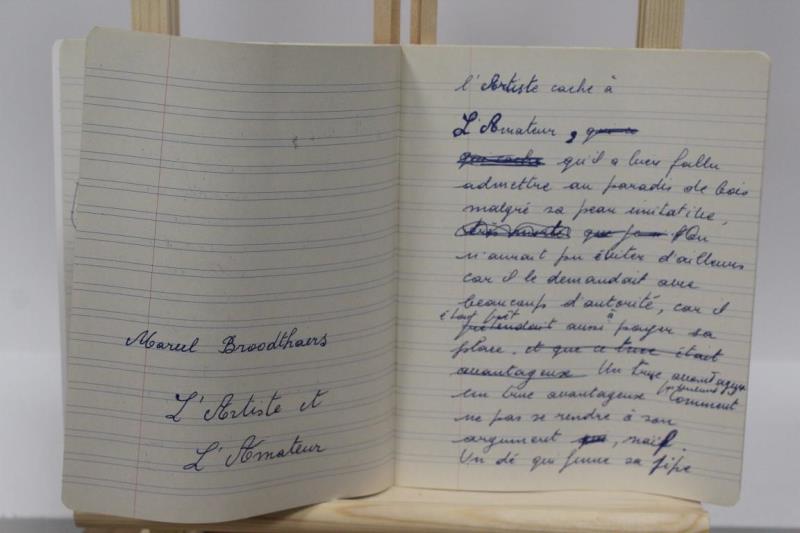 Marcel Broodthaers
L'Artiste et
L'Amateur
l'Artiste cache à
L'Amateur,
qui cache qu'il a bien fallu
admettre au paradis de bois
malgré sa peau imitative,
On
n'aurait pu éviter d'ailleurs
car il le demandait avec
beaucoup d'autorité, car il
était prêt à
prétendait aussi payer sa
place. et que ce truc était
avantageux Un truc avantageux
un truc avantageux Comment
ne pas se rendre à son
argument, naïf.
Un dé qui fume sa pipe